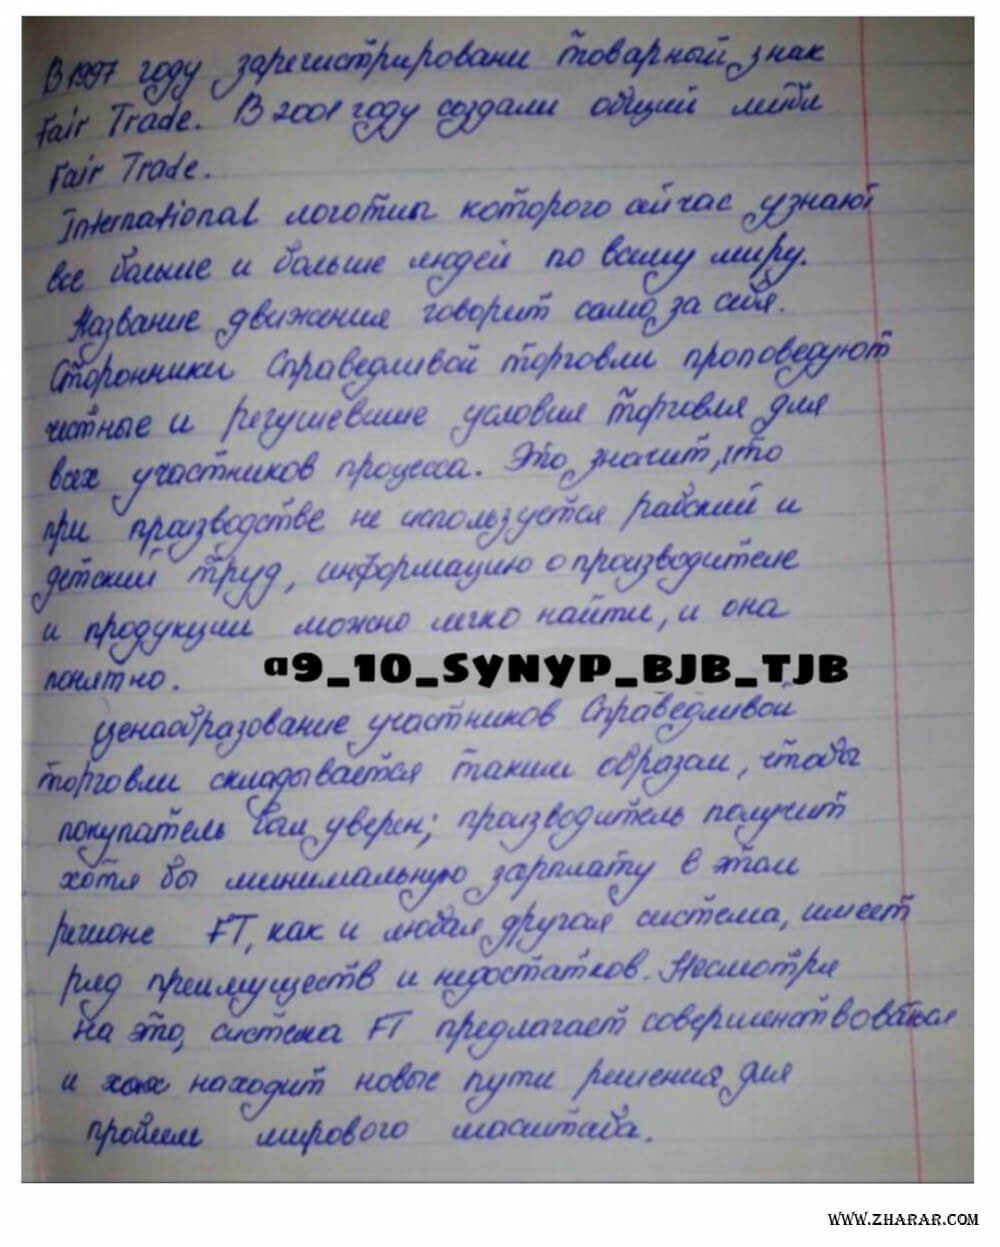 В 1997 году зарегистрировани товарный знак
Fair Trade. В 2001 году создали общий
Fair Trade.
International логотип которого сйчас узнают
все больше и больше людей по всему миру.
Название движения говорит само за себя.
Сторонники Справедливой торговли проповедуют
честные и условия торговля для
всех участников процесса. Это значит, что
при производстве не используется рабский и
детский труд, информацию о производителе
и продукции можно легко найти, и она
понятно.
a9_10_SYNYP_BJB_TJB
Ценаобразование участников Справедливой
торговли складывается таким образом, чтобы
покупатель был уверен; производитель получит
хотя бы минимальную зарплату в этом
регионе FT, как и любая другая система, имеет
ряд преимуществ и недостатков. Несмотря
на это, система FT предлагает совершенствоваться
и находит новые пути решения для
проблем мирового масштаба.
WWW.ZHARAR.COM